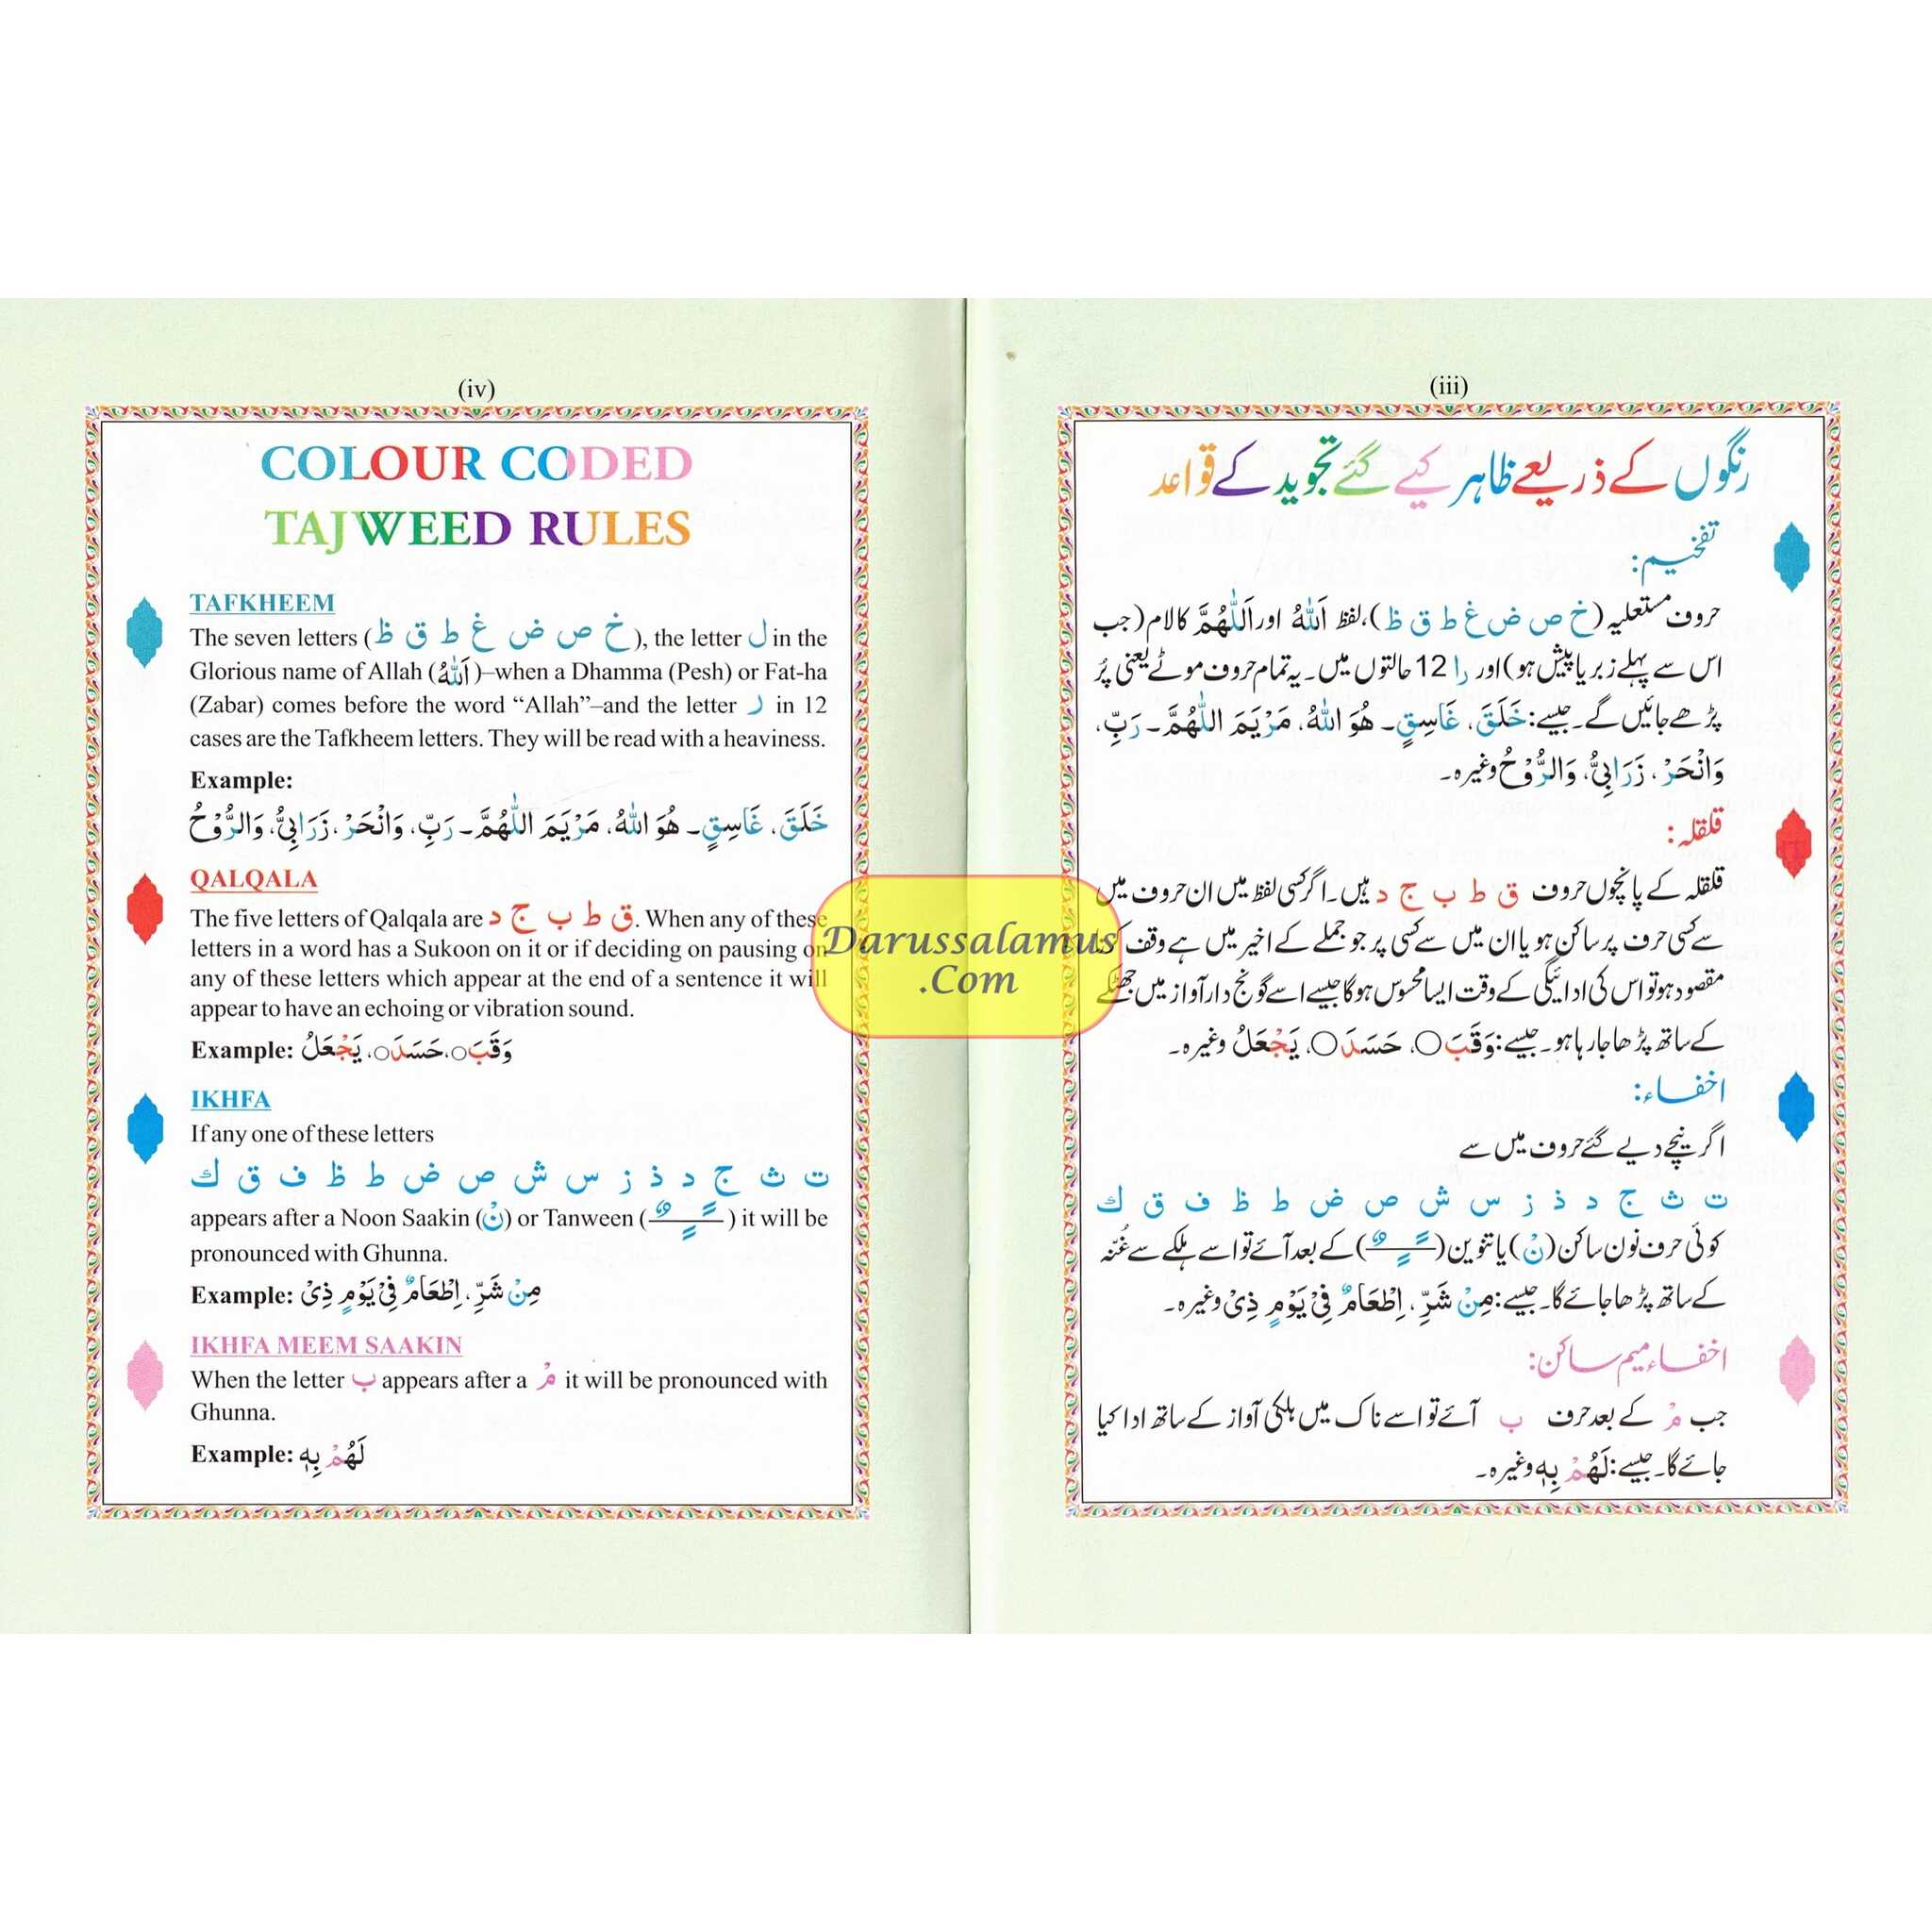 (iv)
COLOUR CODED
TAJWEED RULES
TAFKHEEM
The seven letters (خ ص ض غ ط ق ظ), the letter ل in the
Glorious name of Allah (اَللّٰهُ)–when a Dhamma (Pesh) or Fat-ha
(Zabar) comes before the word “Allah”–and the letter ر in 12
cases are the Tafkheem letters. They will be read with a heaviness.
Example:
خَلَقَ، غَاسِقٍ۔ هُوَ اللّٰهُ، مَرْيَمَ اللّٰهُمَّ۔ رَبِّ، وَانْحَرْ، زَرَابِيُّ، وَالرُّوْحُ
QALQALA
The five letters of Qalqala are ق ط ب ج د. When any of these
letters in a word has a Sukoon on it or if deciding on pausing on
any of these letters which appear at the end of a sentence it will
appear to have an echoing or vibration sound.
Example: وَقَبَ○، حَسَدَ○، يَجْعَلُ
IKHFA
If any one of these letters
ت ث ج د ذ ز س ش ص ض ط ظ ف ق ك
appears after a Noon Saakin (نْ) or Tanween (ـًـٍـٌ) it will be
pronounced with Ghunna.
Example: مِنْ شَرِّ، اِطْعَامٌ فِيْ يَوْمٍ ذِيْ
IKHFA MEEM SAAKIN
When the letter ب appears after a مْ it will be pronounced with
Ghunna.
Example: لَهُمْ بِهٖ
(iii)
رنگوں کے ذریعے ظاہر کیے گئے تجوید کے قواعد
تفخیم:
حروف مستعلیہ (خ ص ض غ ط ق ظ)، لفظ اَللّٰهُ اور اَللّٰهُمَّ کا لام (جب
اس سے پہلے زبر یا پیش ہو) اور را 12 حالتوں میں۔ یہ تمام حروف موٹے یعنی پُر
پڑھے جائیں گے۔ جیسے: خَلَقَ، غَاسِقٍ۔ هُوَ اللّٰهُ، مَرْيَمَ اللّٰهُمَّ۔ رَبِّ،
وَانْحَرْ، زَرَابِيُّ، وَالرُّوْحُ وغیرہ۔
قلقلہ:
قلقلہ کے پانچوں حروف ق ط ب ج د ہیں۔ اگر کسی لفظ میں ان حروف میں
سے کسی حرف پر ساکن ہو یا ان میں سے کسی پر جو جملے کے اخیر میں ہے وقف
مقصود ہو تو اس کی ادائیگی کے وقت ایسا محسوس ہوگا جیسے اسے گونج دار آواز میں جھٹکے
کے ساتھ پڑھا جا رہا ہو۔ جیسے: وَقَبَ○، حَسَدَ○، يَجْعَلُ وغیرہ۔
اخفاء:
اگر نیچے دیے گئے حروف میں سے
ت ث ج د ذ ز س ش ص ض ط ظ ف ق ك
کوئی حرف نون ساکن (نْ) یا تنوین (ـًـٍـٌ) کے بعد آئے تو اسے ہلکے سے غُنّہ
کے ساتھ پڑھا جائے گا۔ جیسے: مِنْ شَرِّ، اِطْعَامٌ فِيْ يَوْمٍ ذِيْ وغیرہ۔
اخفاء میم ساکن:
جب مْ کے بعد حرف ب آئے تو اسے ناک میں ہلکی آواز کے ساتھ ادا کیا
جائے گا۔ جیسے: لَهُمْ بِهٖ وغیرہ۔
Darussalamus
.Com